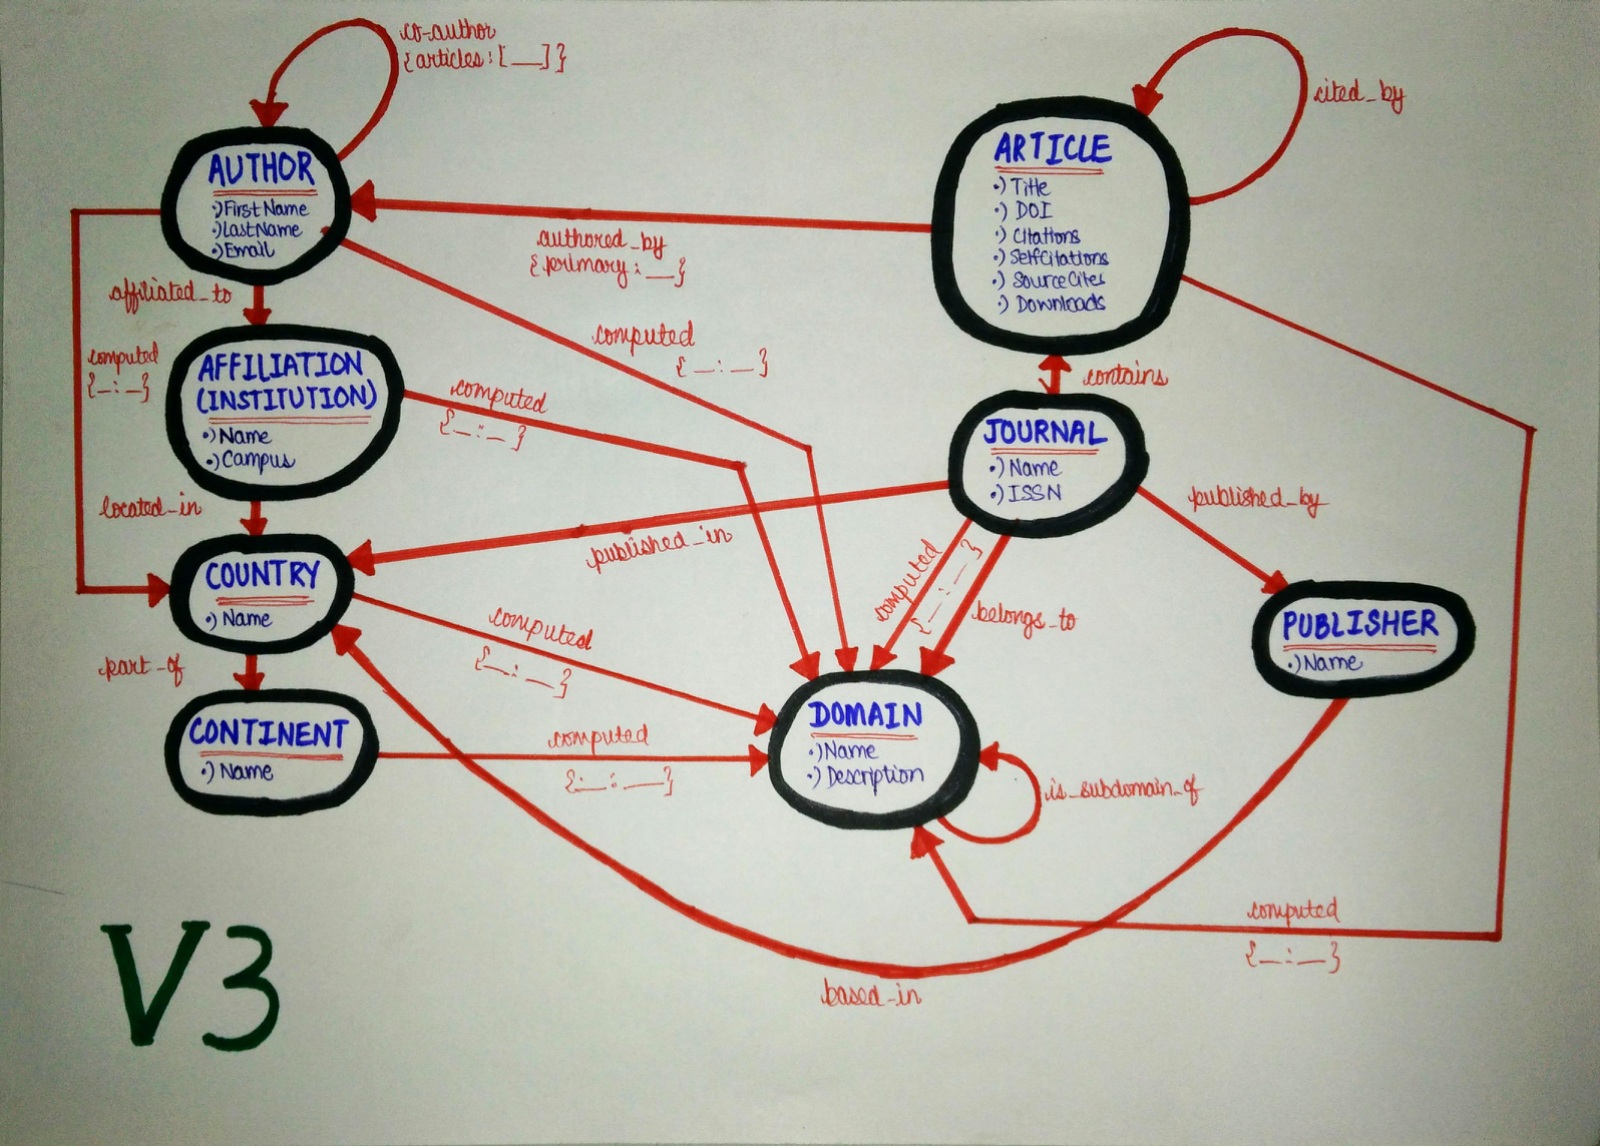 co-author
{articles: [__]}
AUTHOR
•) FirstName
•) LastName
•) Email
authored_by
{primary: __}
ARTICLE
•) Title
•) DOI
•) Citations
•) SelfCitations
•) SourceCites
•) Downloads
cited_by
affiliated_to
computed
{_:_}
AFFILIATION
(INSTITUTION)
•) Name
•) Campus
computed
{_:_}
computed
{_:_}
contains
JOURNAL
•) Name
•) ISSN
located_in
published_in
published_by
COUNTRY
•) Name
computed
{_:_}
computed
{_:_}
belongs_to
PUBLISHER
•) Name
part_of
CONTINENT
•) Name
computed
{_:_}
DOMAIN
•) Name
•) Description
is_subdomain_of
computed
{_:_}
based_in
V3